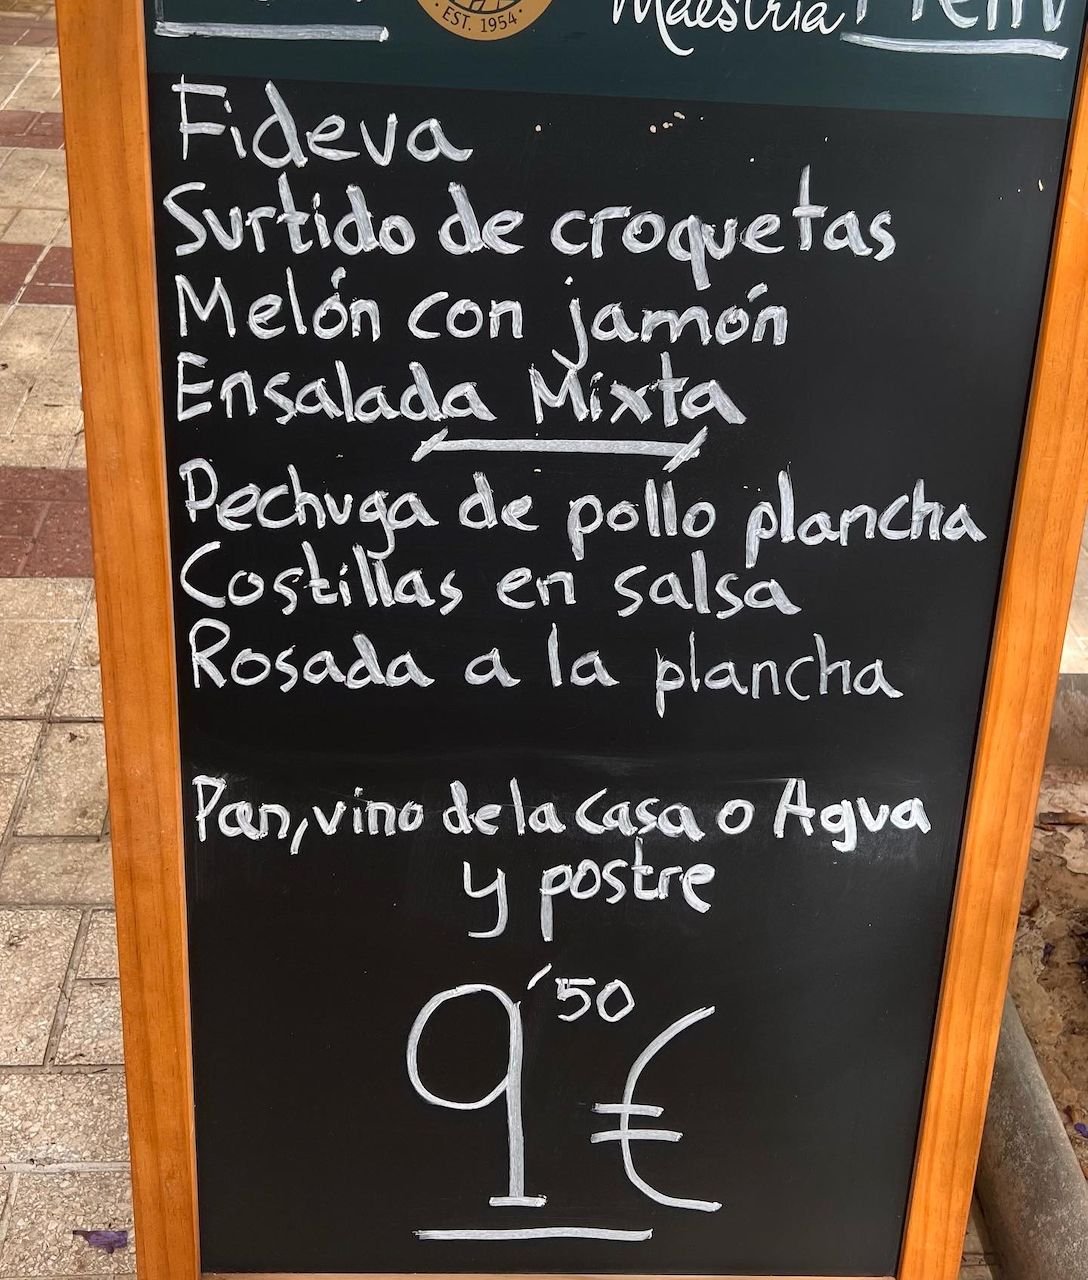 EST. 1954
Maestría
Fideva
Surtido de croquetas
Melón con jamón
Ensalada Mixta
Pechuga de pollo plancha
Costillas en salsa
Rosada a la plancha
Pan, vino de la casa o Agua
y postre
9'50 €